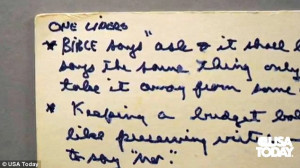 ONE LINERS
* BIBLE says "ask & it shall b
says the same thing only
take it away from some
* Keeping a budget bal
like preserving virt
to say "no".
USA
TODAY
© USA Today